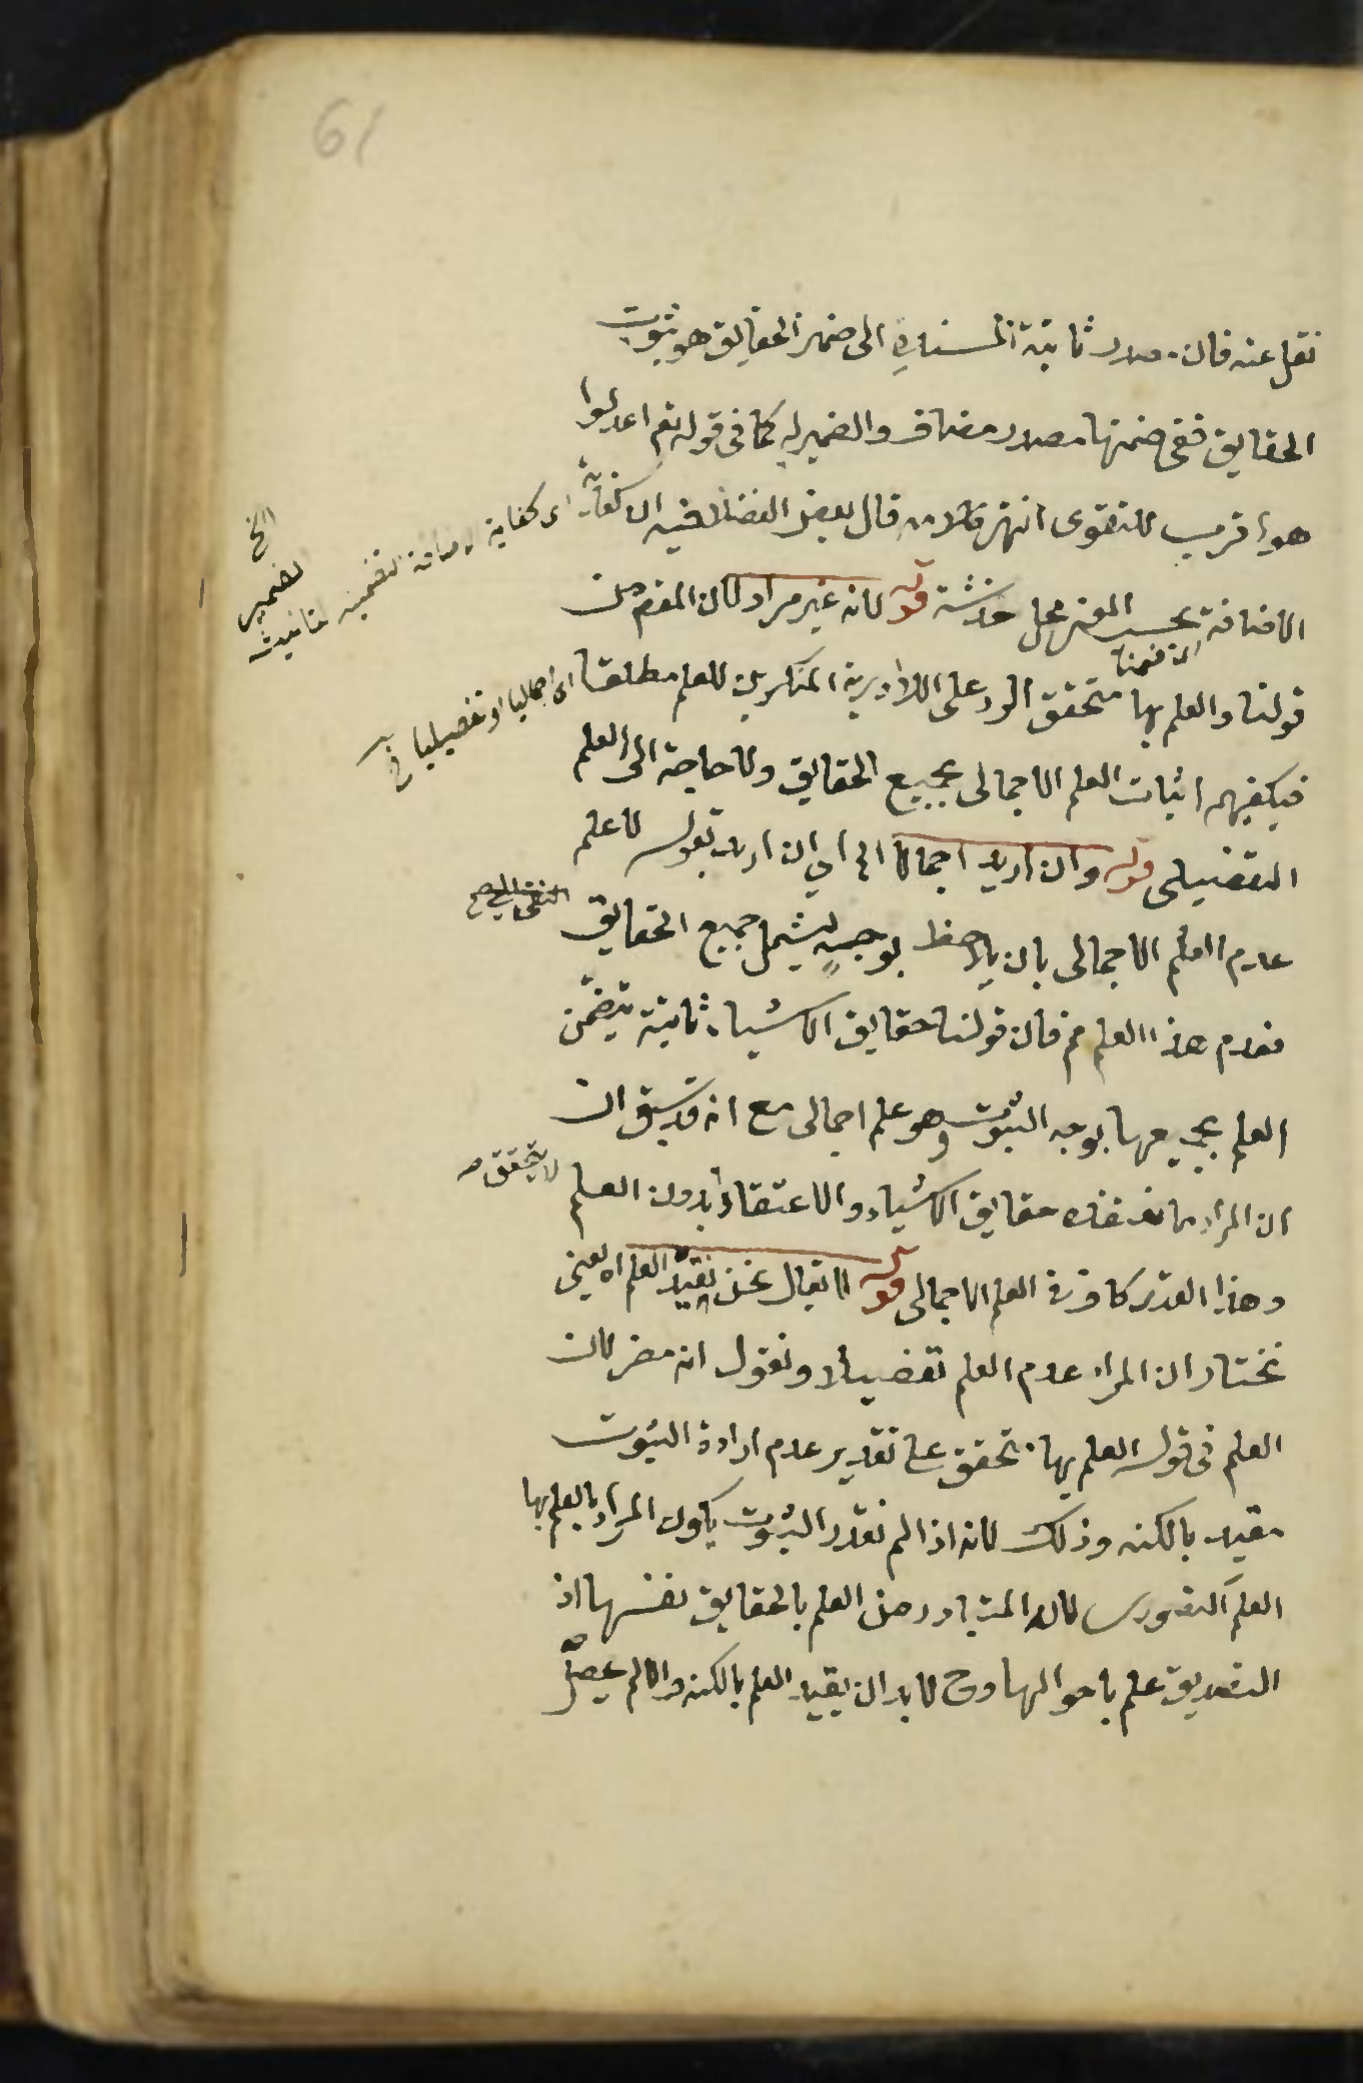 61
نقل عنه فان مصدر ثابتة المسندة الى ضمير الحقايق هو ثبوت
الحقايق ففى ضمنها مصدر مضاف والضمير له كما فى قوله تع اعدلوا
هو اقرب للتقوى انتهى كلامه قال بعض الفضلا فيه ان كفاية
اى كفاية الاضافة الضمنية لتانيث
الضمير
الخ
الاضافة بحسب المعنى محل خدشة قوله لانه غير مراد لان المقصود من
الضمنية
قولنا والعلم بها متحقق الرد على اللاادرية المنكرين للعلم مطلقا
اى اجماليا او تفصيليا
فيكفيهم اثبات العلم الاجمالى بجميع الحقايق ولا حاجة الى العلم
التفصيلى قوله وان اريد اجمالا الخ اى ان اريد بقوله لا علم
عدم العلم الاجمالى بان يلاحظ بوجه يشمل جميع الحقايق
فعدم هذا العلم مم فان قولنا حقايق الاشياء ثابتة يتضمن
العلم بجميعها بوجه الثبوت وهو علم اجمالى مع انه قد سبق ان
ان المراد ما نعتقده حقايق الاشياء والاعتقاد بدون العلم
لا يتحقق صح
وهذا القدر كاف فى العلم الاجمالى قوله لا يقال نحن نقيد العلم اه يعنى
نختار ان المراد عدم العلم تفصيلا ونقول انه مضر لان
العلم فى قوله العلم بها متحقق على تقدير عدم ارادة الثبوت
مقيد بالكنه وذلك لانه اذا لم نقدر الثبوت يكون المراد بالعلم بها
العلم التصورى لانه المتبادر من العلم بالحقايق نفسها اذ
التصديق علم باحوالها وح لا بد ان يقيد العلم بالكنه والا لم يحصل